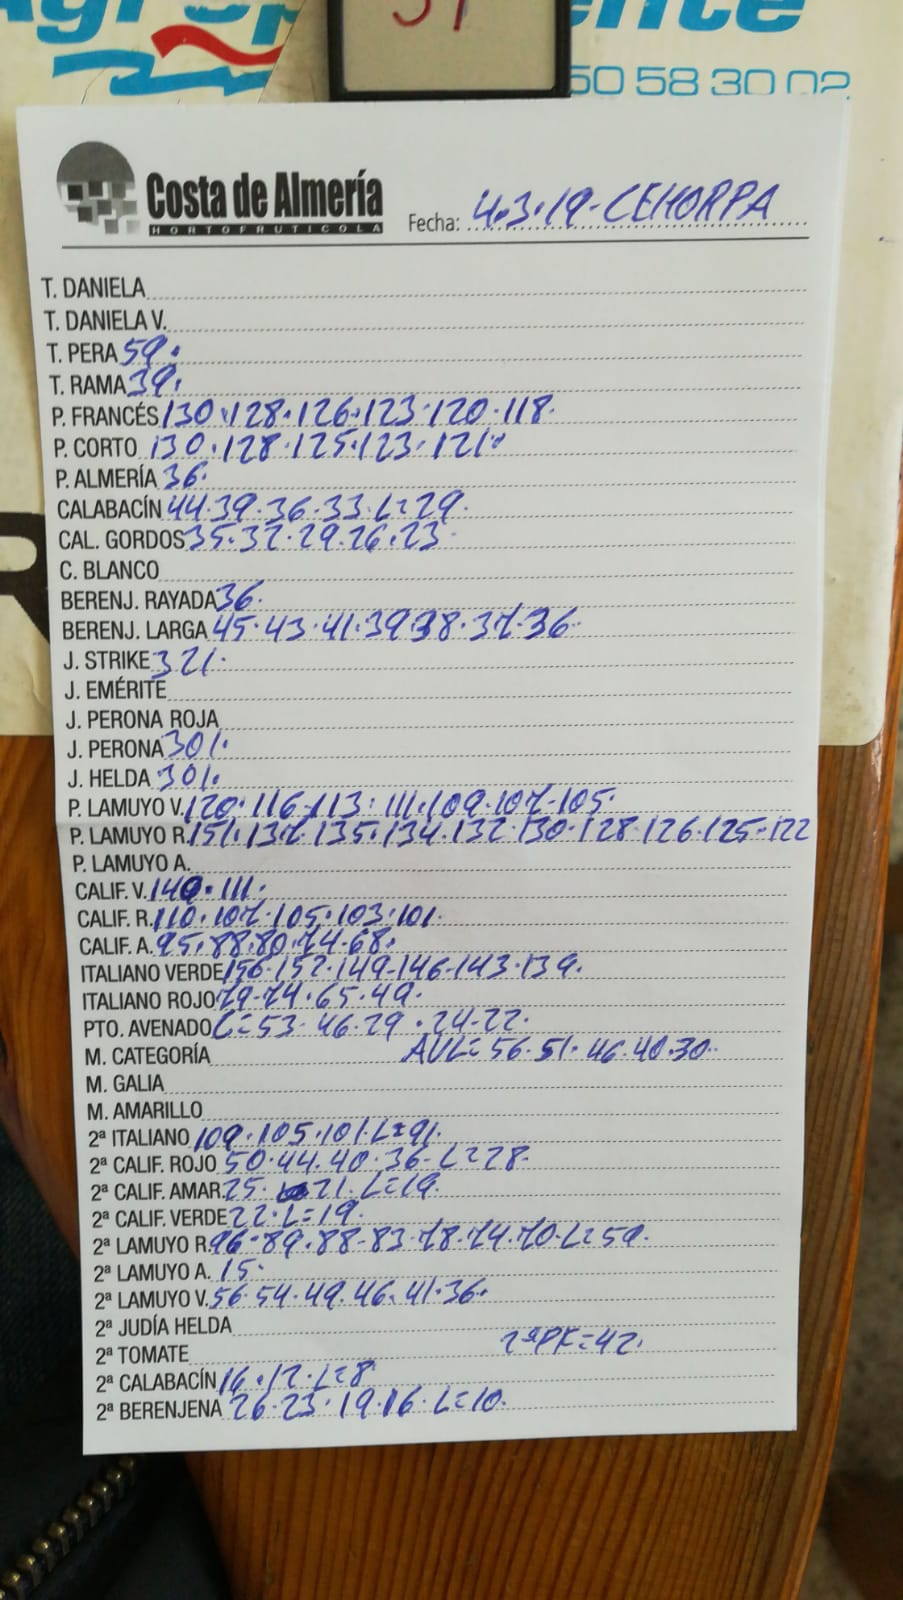 50 58 30 02
Costa de Almería
HORTOFRUTICOLA
Fecha: 4.3.19-CEHORPA
T. DANIELA
T. DANIELA V.
T. PERA 59.
T. RAMA 39.
P. FRANCÉS 130.128.126.123.120.118.
P. CORTO 130.128.125.123.121.
P. ALMERÍA 36.
CALABACÍN 44.39.36.33.L=29.
CAL. GORDOS 35.32.29.26.23.
C. BLANCO
BERENJ. RAYADA 36.
BERENJ. LARGA 45.43.41.39.38.37.36.
J. STRIKE 321.
J. EMÉRITE
J. PERONA ROJA
J. PERONA 301.
J. HELDA 301.
P. LAMUYO V. 120.116.113.111.109.107.105.
P. LAMUYO R. 151.137.135.134.132.130.128.126.125.122
P. LAMUYO A.
CALIF. V. 140.111.
CALIF. R. 110.107.105.103.101.
CALIF. A. 95.88.80.74.68.
ITALIANO VERDE 156.152.149.146.143.139.
ITALIANO ROJO 79.74.65.49.
PTO. AVENADO C=53.46.29.24.22.
M. CATEGORÍA AVL=56.51.46.40.30.
M. GALIA
M. AMARILLO
2ª ITALIANO 109.105.101.L=91.
2ª CALIF. ROJO 50.44.40.36.L=28.
2ª CALIF. AMAR. 25. 21.L=19.
2ª CALIF. VERDE 22.L=19.
2ª LAMUYO R. 96.89.88.83.78.74.70.L=59.
2ª LAMUYO A. 15.
2ª LAMUYO V. 56.54.49.46.41.36.
2ª JUDÍA HELDA
2ª TOMATE 2ªPF=42.
2ª CALABACÍN 16.12.L=8
2ª BERENJENA 26.23.19.16.L=10.